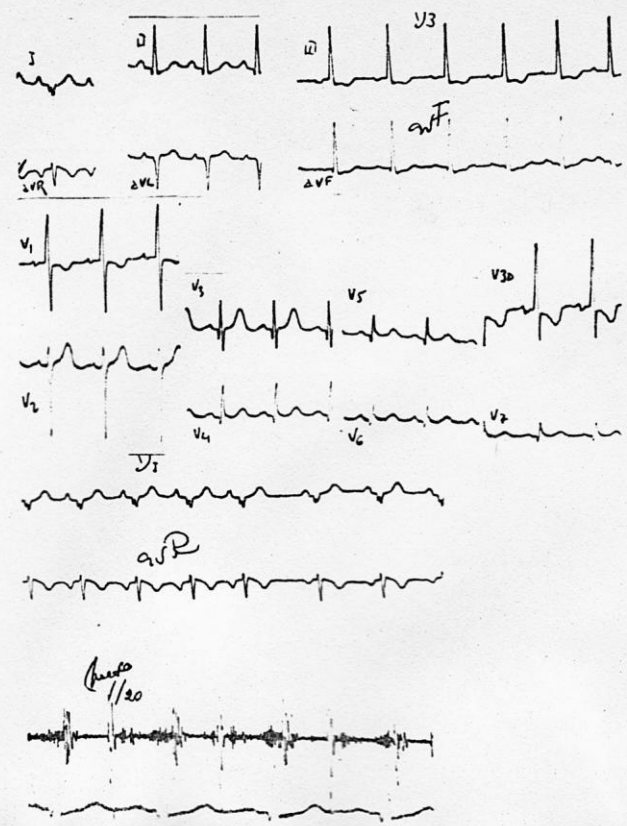 I
II
III
D3
aVR
aVL
aVF
aVF
V1
V2
V3
V4
V5
V6
V3D
V7
DI
aVR
1/20